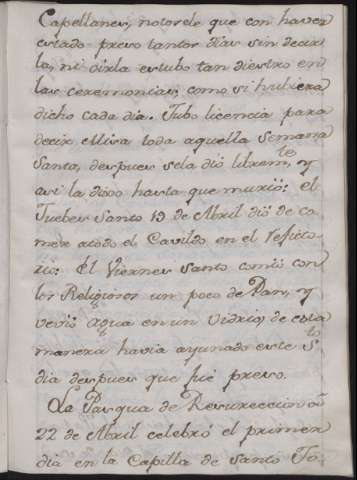 Capellanes, notorele que con haver
estado preso tantos dias sin decir
la, ni oirla estubo tan diestro en
las ceremonias, como si hubiera
dicho cada dia. Tubo licencia para
decir Missa toda aquella Semana
Santa, despues sela dió librem.te, y
asi la dixo hasta que murió: el
Jueves Santo 19 de Abril dió de co-
mer atodo el Cavildo en el refito-
rio: El Viernes Santo comió con
los Religiosos un poco de Pan, y
vevió agua en un vidrio, de esta
manera havia ayunado este S.to
dia despues que fue preso.
La Pasqua de Resureccion
22 de Abril celebró el primer
dia en la Capilla de Santo To-